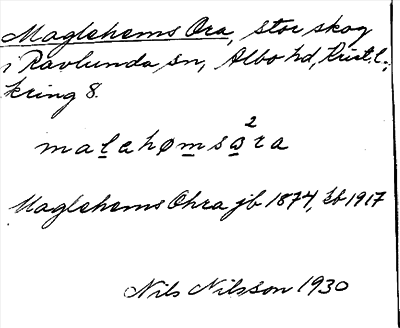 Maglehems Ora, stor skog
i Ravlunda sn, Albo hd, Krist. l.,
kring 8.
malehømsɷ²ra
Maglehems Ohra jb 1874, kb 1917
Nils Nilsson 1930